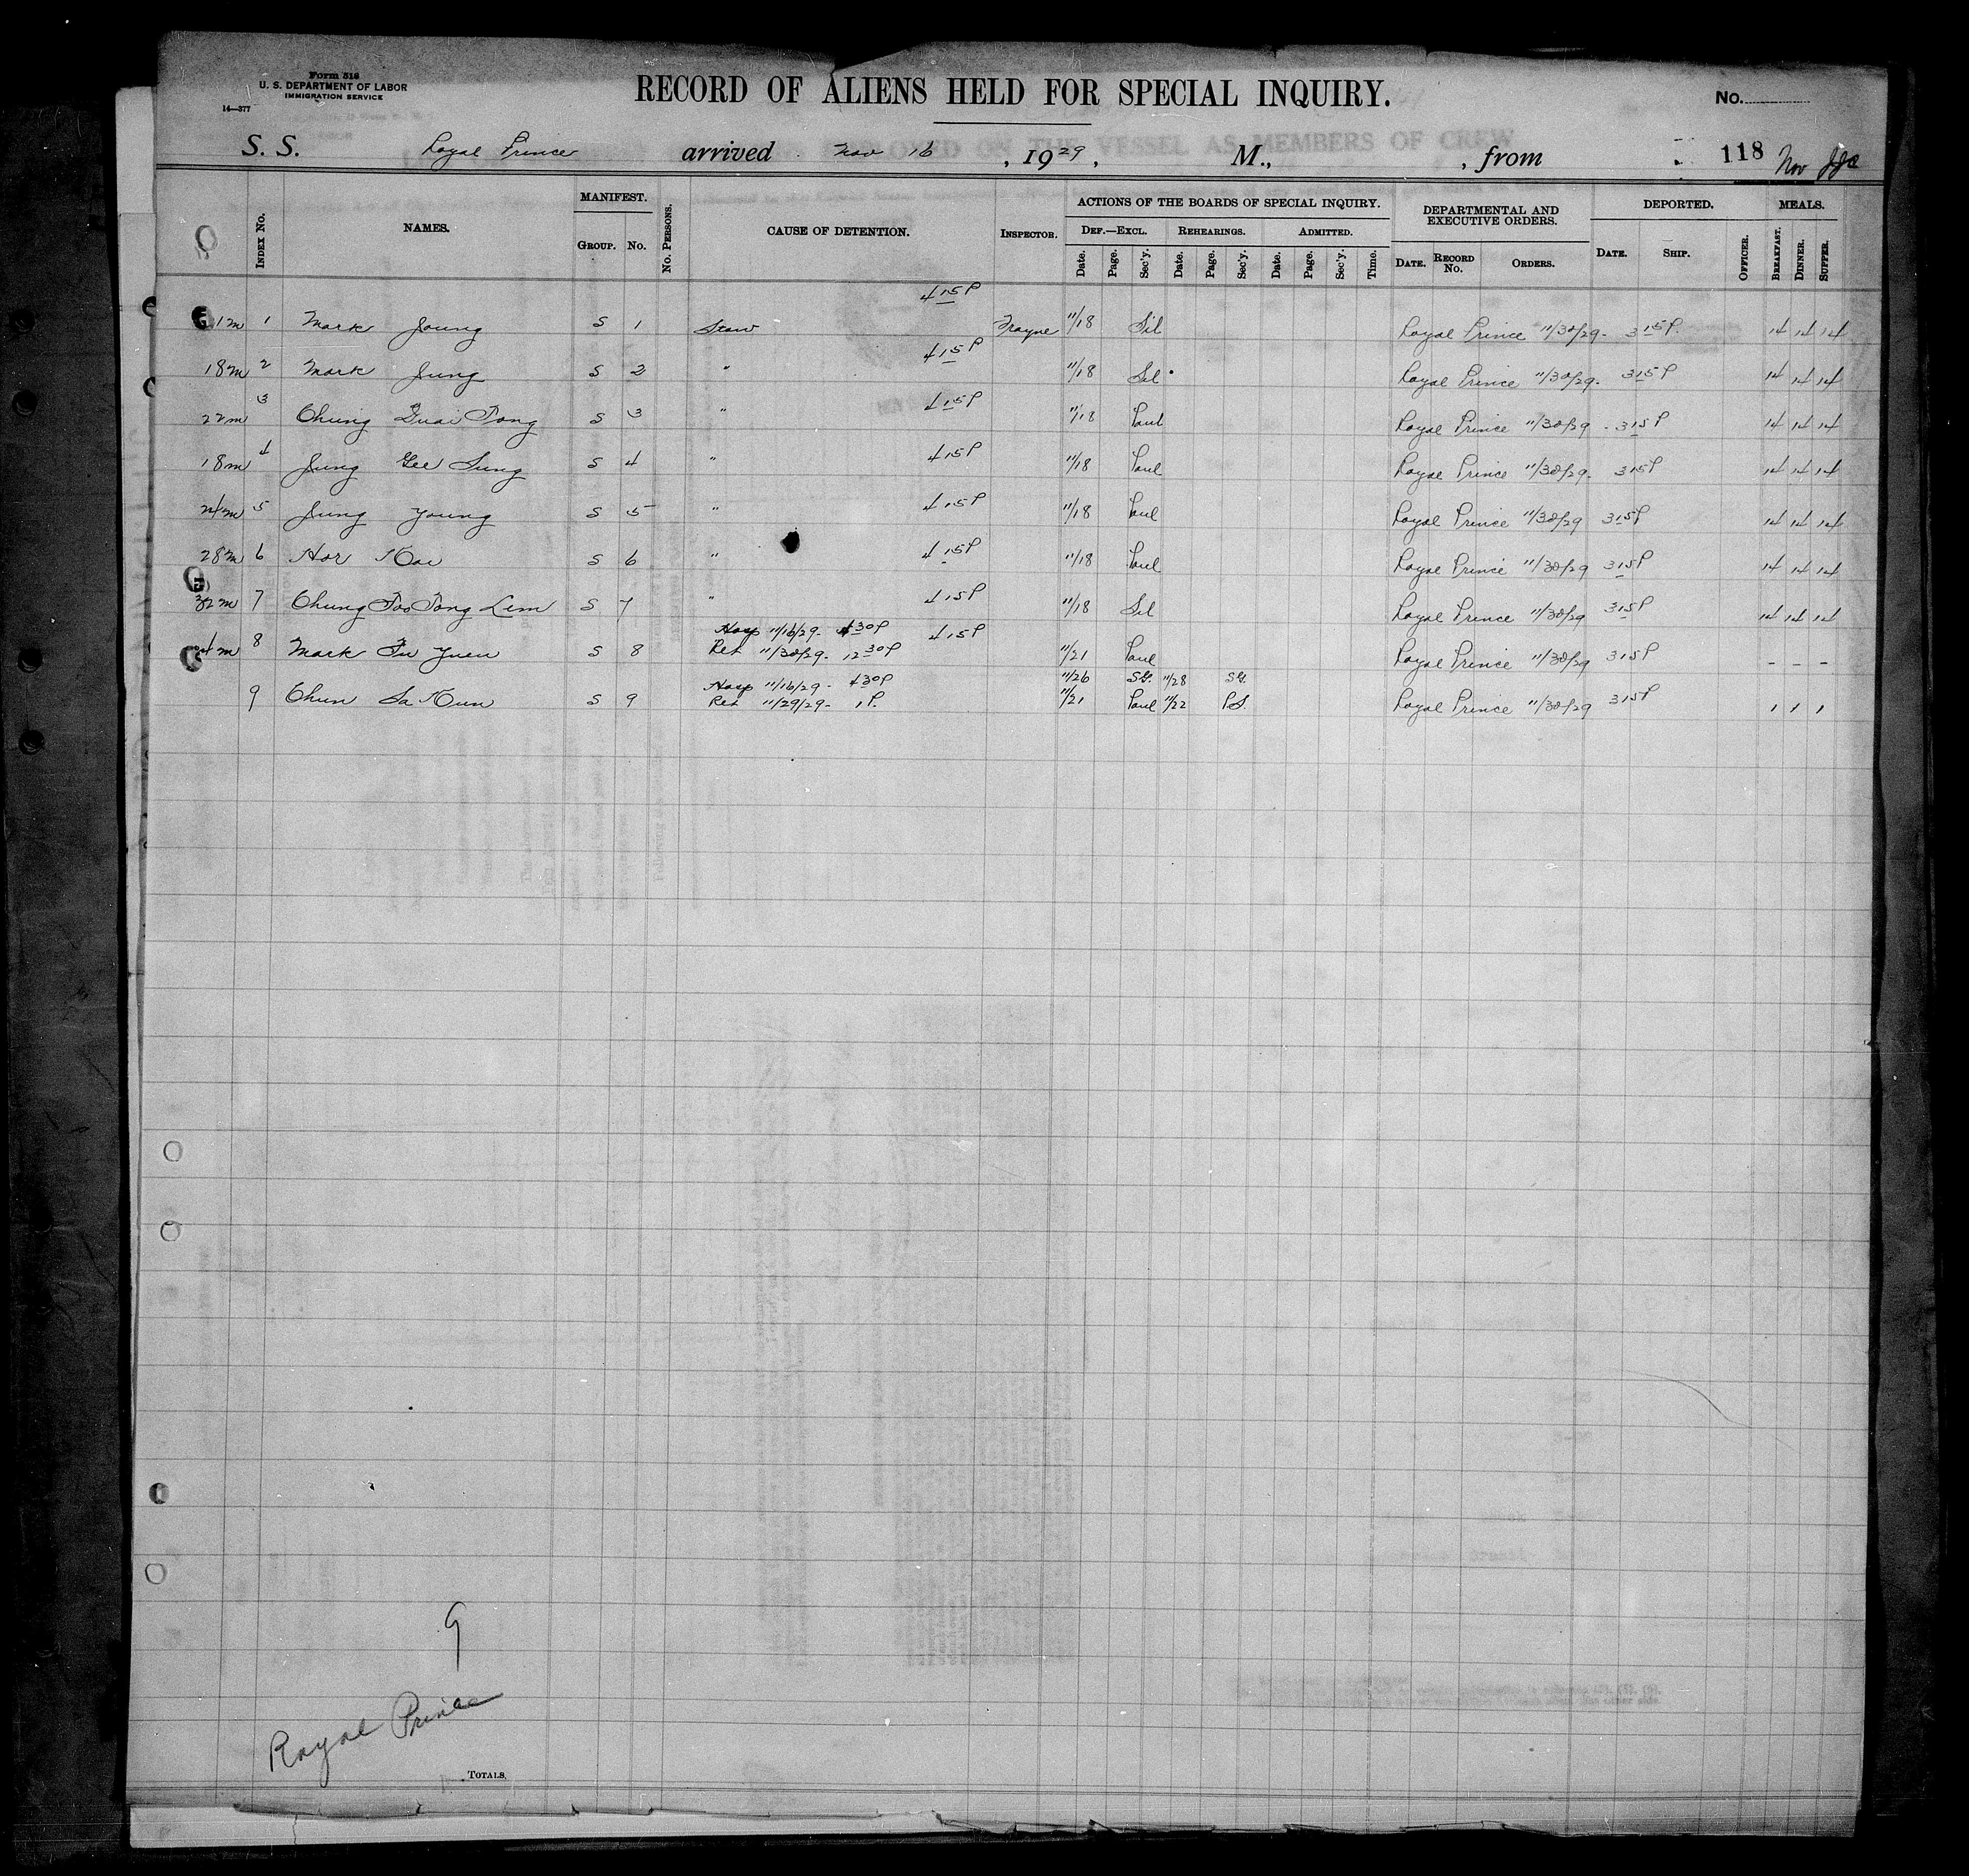 Form 518
U. S. DEPARTMENT OF LABOR
IMMIGRATION SERVICE
14—377
RECORD OF ALIENS HELD FOR SPECIAL INQUIRY.
No.
S. S. Royal Prince arrived Nov 16, 1929, M., , from 118 Nov
INDEX No. NAMES. MANIFEST. GROUP. No. No. PERSONS. CAUSE OF DETENTION. INSPECTOR. ACTIONS OF THE BOARDS OF SPECIAL INQUIRY. DEF.—EXCL. Date. Page. Sec'y. REHEARINGS. Date. Page. Sec'y. ADMITTED. Date. Page. Sec'y. Time. DEPARTMENTAL AND EXECUTIVE ORDERS. DATE. RECORD No. ORDERS. DEPORTED. DATE. SHIP. OFFICER. MEALS. BREAKFAST. DINNER. SUPPER.
1m 1 Mark Joung S 1 Stow 415P Frayne 11/18 Sil Royal Prince 11/30/29- 315P. 14 14 14
18m 2 Mark Jung S 2 " 415P 11/18 Sil Royal Prince 11/30/29- 315P 14 14 14
22m 3 Chung Guai Fong S 3 " 415P 11/18 Paul Royal Prince 11/30/29- 315P 14 14 14
18m 4 Jung Gee Sung S 4 " 415P 11/18 Paul Royal Prince 11/30/29- 315P 14 14 14
24m 5 Jung Young S 5 " 415P 11/18 Paul Royal Prince 11/30/29 315P 14 14 14
28m 6 Hor Koi S 6 " 415P 11/18 Paul Royal Prince 11/30/29 315P 14 14 14
32m 7 Chung Foo Tong Lem S 7 " 415P 11/18 Sil Royal Prince 11/30/29 315P 14 14 14
m 8 Mark Fu Yuen S 8 Hosp 11/16/29- 430P 415P
Ret 11/30/29- 1230P 11/21 Paul Royal Prince 11/30/29 315P - - -
9 Chun Sa Kun S 9 Hosp 11/16/29- 430P 11/26 SG. 11/28 SG.
Ret 11/29/29- 1P. 11/21 Paul 11/22 PS. Royal Prince 11/30/29 315P 1 1 1
9
Royal Prince
TOTALS.